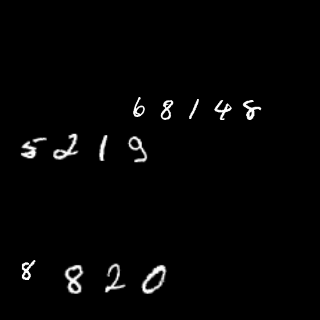 68148
5219
8 820